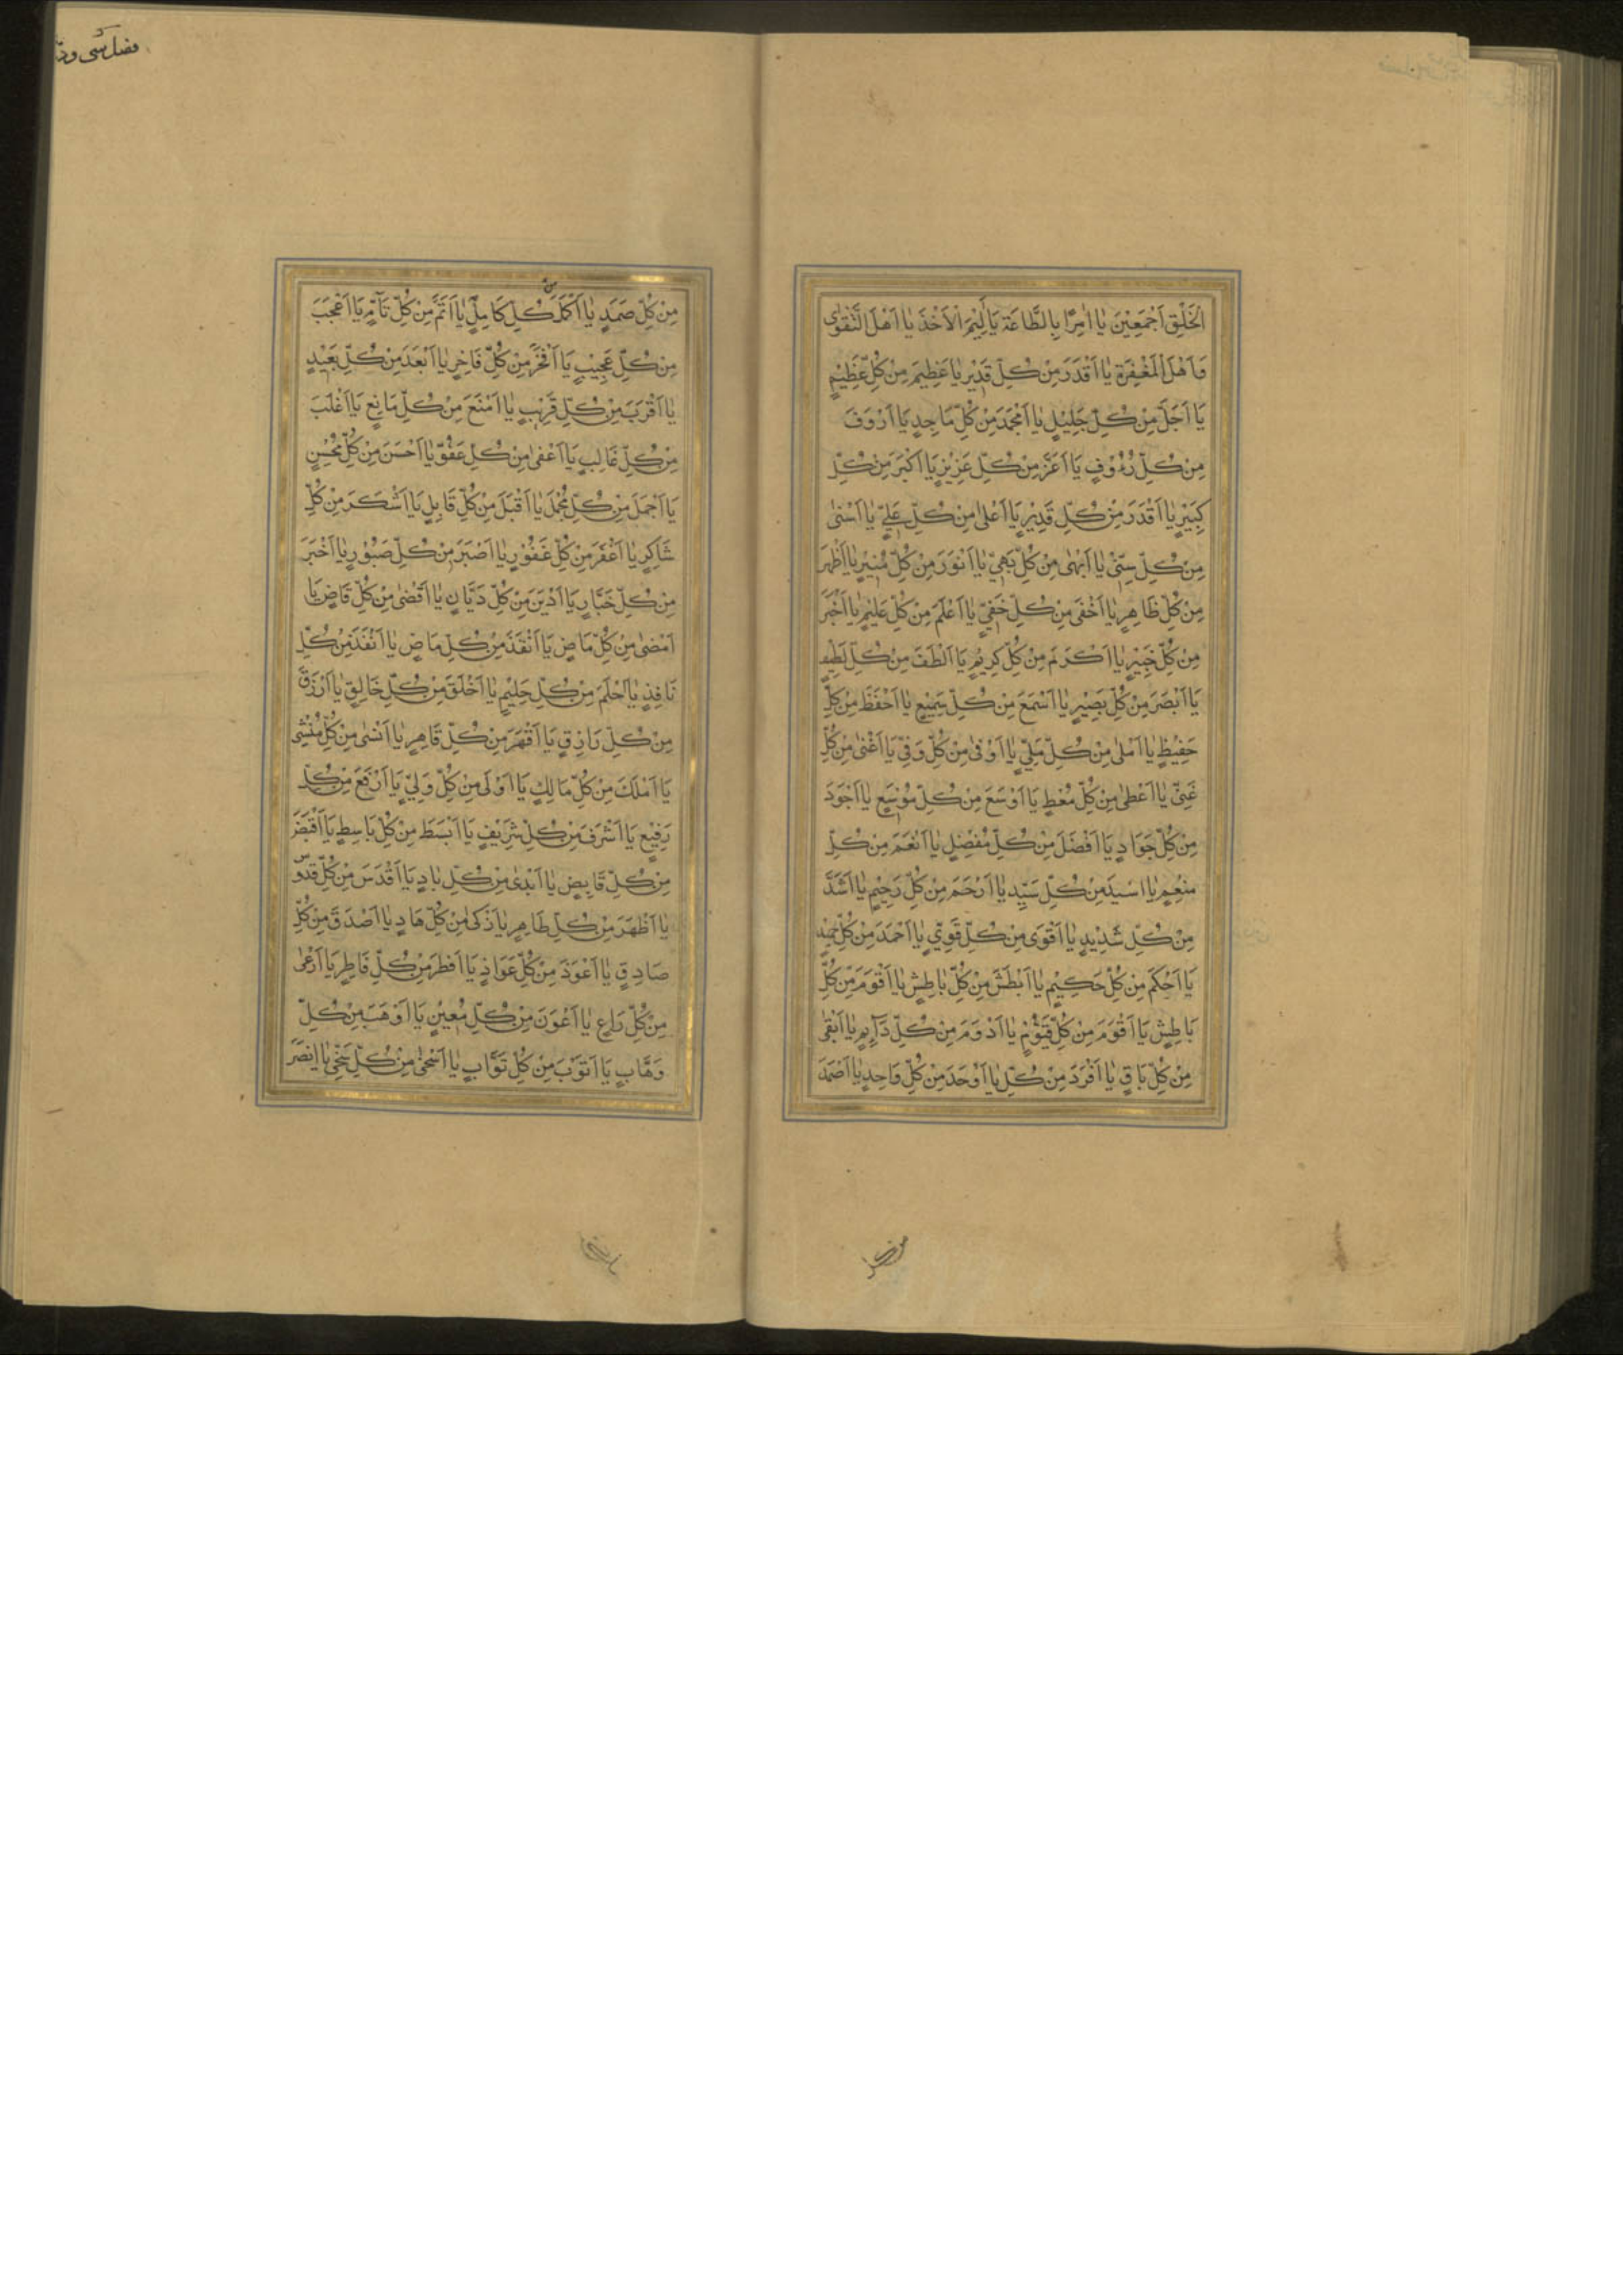 الْخَلْقِ اَجْمَعِيْنَ يَا اٰمِرًا بِالطَّاعَةِ يَا اَلِيْمَ الْاَخْذِ يَا اَهْلَ التَّقْوٰى
وَاَهْلَ الْمَغْفِرَةِ يَا اَقْدَرَ مِنْ كُلِّ قَدِيْرٍ يَا عَظِيْمَ مِنْ كُلِّ عَظِيْمٍ
يَا اَجَلَّ مِنْ كُلِّ جَلِيْلٍ يَا اَمْجَدَ مِنْ كُلِّ مَاجِدٍ يَا اَرْوَفَ
مِنْ كُلِّ رَؤُوْفٍ يَا اَعَزَّ مِنْ كُلِّ عَزِيْزٍ يَا اَكْبَرَ مِنْ كُلِّ
كَبِيْرٍ يَا اَقْدَرَ مِنْ كُلِّ قَدِيْرٍ يَا اَعْلٰى مِنْ كُلِّ عَلِيٍّ يَا اَسْنٰى
مِنْ كُلِّ سَنِيٍّ يَا اَبْهٰى مِنْ كُلِّ بَهِيٍّ يَا اَنْوَرَ مِنْ كُلِّ مُنِيْرٍ يَا اَظْهَرَ
مِنْ كُلِّ ظَاهِرٍ يَا اَخْفٰى مِنْ كُلِّ خَفِيٍّ يَا اَعْلَمَ مِنْ كُلِّ عَلِيْمٍ يَا اَخْبَرَ
مِنْ كُلِّ خَبِيْرٍ يَا اَكْرَمَ مِنْ كُلِّ كَرِيْمٍ يَا اَلْطَفَ مِنْ كُلِّ لَطِيْفٍ
يَا اَبْصَرَ مِنْ كُلِّ بَصِيْرٍ يَا اَسْمَعَ مِنْ كُلِّ سَمِيْعٍ يَا اَحْفَظَ مِنْ كُلِّ
حَفِيْظٍ يَا اَمْلٰى مِنْ كُلِّ مَلِيٍّ يَا اَوْفٰى مِنْ كُلِّ وَفِيٍّ يَا اَغْنٰى مِنْ كُلِّ
غَنِيٍّ يَا اَعْطٰى مِنْ كُلِّ مُعْطٍ يَا اَوْسَعَ مِنْ كُلِّ مُوْسِعٍ يَا اَجْوَدَ
مِنْ كُلِّ جَوَادٍ يَا اَفْضَلَ مِنْ كُلِّ مُفْضِلٍ يَا اَنْعَمَ مِنْ كُلِّ
مُنْعِمٍ يَا اَسْيَدَ مِنْ كُلِّ سَيِّدٍ يَا اَرْحَمَ مِنْ كُلِّ رَحِيْمٍ يَا اَشَدَّ
مِنْ كُلِّ شَدِيْدٍ يَا اَقْوَى مِنْ كُلِّ قَوِيٍّ يَا اَحْمَدَ مِنْ كُلِّ حَمِيْدٍ
يَا اَحْكَمَ مِنْ كُلِّ حَكِيْمٍ يَا اَبْطَشَ مِنْ كُلِّ بَاطِشٍ يَا اَقْوَمَ مِنْ كُلِّ
بَاطِشٍ يَا اَقْوَمَ مِنْ كُلِّ قَيُّوْمٍ يَا اَدْوَمَ مِنْ كُلِّ دَآئِمٍ يَا اَبْقٰى
مِنْ كُلِّ بَاقٍ يَا اَفْرَدَ مِنْ كُلِّ يَا اَوْحَدَ مِنْ كُلِّ وَاحِدٍ يَا اَصْمَدَ
مِنْ كُلِّ صَمَدٍ يَا اَكْمَلَ مِنْ كُلِّ كَامِلٍ يَا اَتَمَّ مِنْ كُلِّ تَآمٍّ يَا اَعْجَبَ
مِنْ كُلِّ عَجِيْبٍ يَا اَفْخَرَ مِنْ كُلِّ فَاخِرٍ يَا اَبْعَدَ مِنْ كُلِّ بَعِيْدٍ
يَا اَقْرَبَ مِنْ كُلِّ قَرِيْبٍ يَا اَمْنَعَ مِنْ كُلِّ مَانِعٍ يَا اَغْلَبَ
مِنْ كُلِّ غَالِبٍ يَا اَعْفٰى مِنْ كُلِّ عَفُوٍّ يَا اَحْسَنَ مِنْ كُلِّ مُحْسِنٍ
يَا اَجْمَلَ مِنْ كُلِّ مُجْمِلٍ يَا اَقْبَلَ مِنْ كُلِّ قَابِلٍ يَا اَشْكَرَ مِنْ كُلِّ
شَاكِرٍ يَا اَغْفَرَ مِنْ كُلِّ غَفُوْرٍ يَا اَصْبَرَ مِنْ كُلِّ صَبُوْرٍ يَا اَخْبَرَ
مِنْ كُلِّ خَبَّارٍ يَا اَدْيَنَ مِنْ كُلِّ دَيَّانٍ يَا اَقْضٰى مِنْ كُلِّ قَاضٍ يَا
اَمْضٰى مِنْ كُلِّ مَاضٍ يَا اَنْقَذَ مِنْ كُلِّ مَاضٍ يَا اَنْفَذَ مِنْ كُلِّ
نَافِذٍ يَا اَحْلَمَ مِنْ كُلِّ حَلِيْمٍ يَا اَخْلَقَ مِنْ كُلِّ خَالِقٍ يَا اَرْزَقَ
مِنْ كُلِّ رَازِقٍ يَا اَقْهَرَ مِنْ كُلِّ قَاهِرٍ يَا اَنْشٰى مِنْ كُلِّ مُنْشِئٍ
يَا اَمْلَكَ مِنْ كُلِّ مَالِكٍ يَا اَوْلٰى مِنْ كُلِّ وَلِيٍّ يَا اَرْفَعَ مِنْ كُلِّ
رَفِيْعٍ يَا اَشْرَفَ مِنْ كُلِّ شَرِيْفٍ يَا اَبْسَطَ مِنْ كُلِّ بَاسِطٍ يَا اَقْبَضَ
مِنْ كُلِّ قَابِضٍ يَا اَبْدٰى مِنْ كُلِّ بَادٍ يَا اَقْدَسَ مِنْ كُلِّ قُدُّوْسٍ
يَا اَطْهَرَ مِنْ كُلِّ طَاهِرٍ يَا اَذْكٰى مِنْ كُلِّ هَادٍ يَا اَصْدَقَ مِنْ كُلِّ
صَادِقٍ يَا اَعْوَذَ مِنْ كُلِّ عَوَاذٍ يَا اَفْطَرَ مِنْ كُلِّ فَاطِرٍ يَا اَرْعٰى
مِنْ كُلِّ رَاعٍ يَا اَعْوَنَ مِنْ كُلِّ مُعِيْنٍ يَا اَوْهَبَ مِنْ كُلِّ
وَهَّابٍ يَا اَتْوَبَ مِنْ كُلِّ تَوَّابٍ يَا اَسْخٰى مِنْ كُلِّ سَخِيٍّ يَا اَنْصَرَ